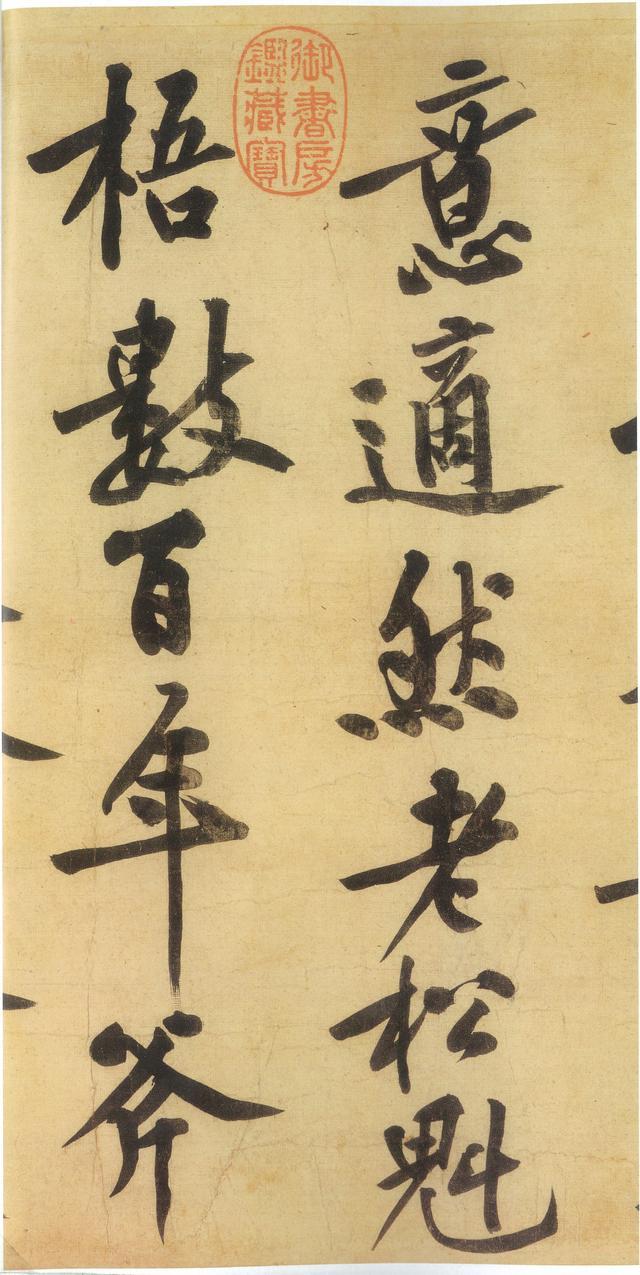 意適然老松魁
梧數百年斧
御書房
鑑藏寶